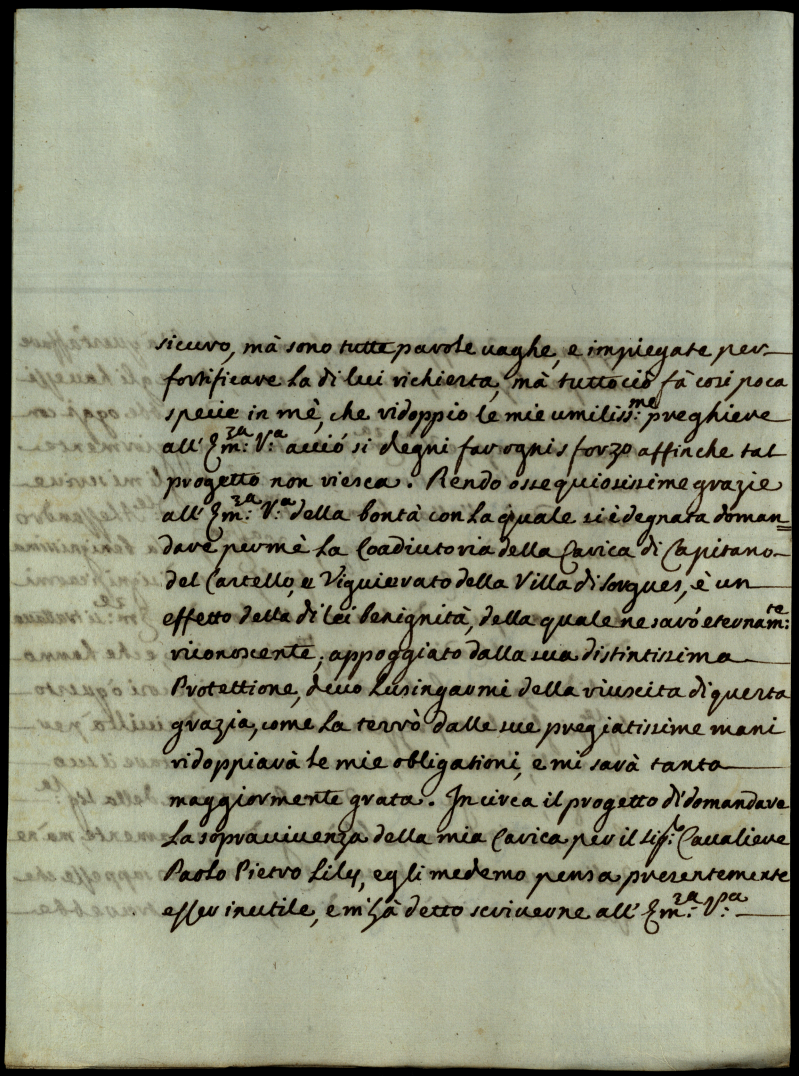 sicuro, mà sono tutte parole vaghe, e impiegate per
fortificare la di lui richiesta, mà tuttociò fà così poca
specie in mè, che ridoppio le mie umiliss:me preghiere
all' Em:za V:a acciò si degni far ogni sforzo affinche tal
progetto non riesca. Rendo ossequiosissime grazie
all' Em:za V:a della bontà con la quale si è degnata doman=
dare per mè la Coadiutoria della Carica di Capitano
del Castello, e Viguierato della Villa di Sorgues, è un
effetto della di lei benignità, della quale ne sarò eternam:te
riconoscente, appoggiato dalla sua distintissima
Protettione, devo lusingarmi della riuscita di questa
grazia, come la terrò dalle sue pregiatissime mani
ridoppiarà le mie obligationi, e mi sarà tanto
maggiormente grata. In circa il progetto di domandare
la sopravivenza della mia Carica per il Sig:r Cavaliere
Paolo Pietro Lily, egli medemo pensa presentemente
esser inutile, e m'hà detto scriverne all' Em:za V:a